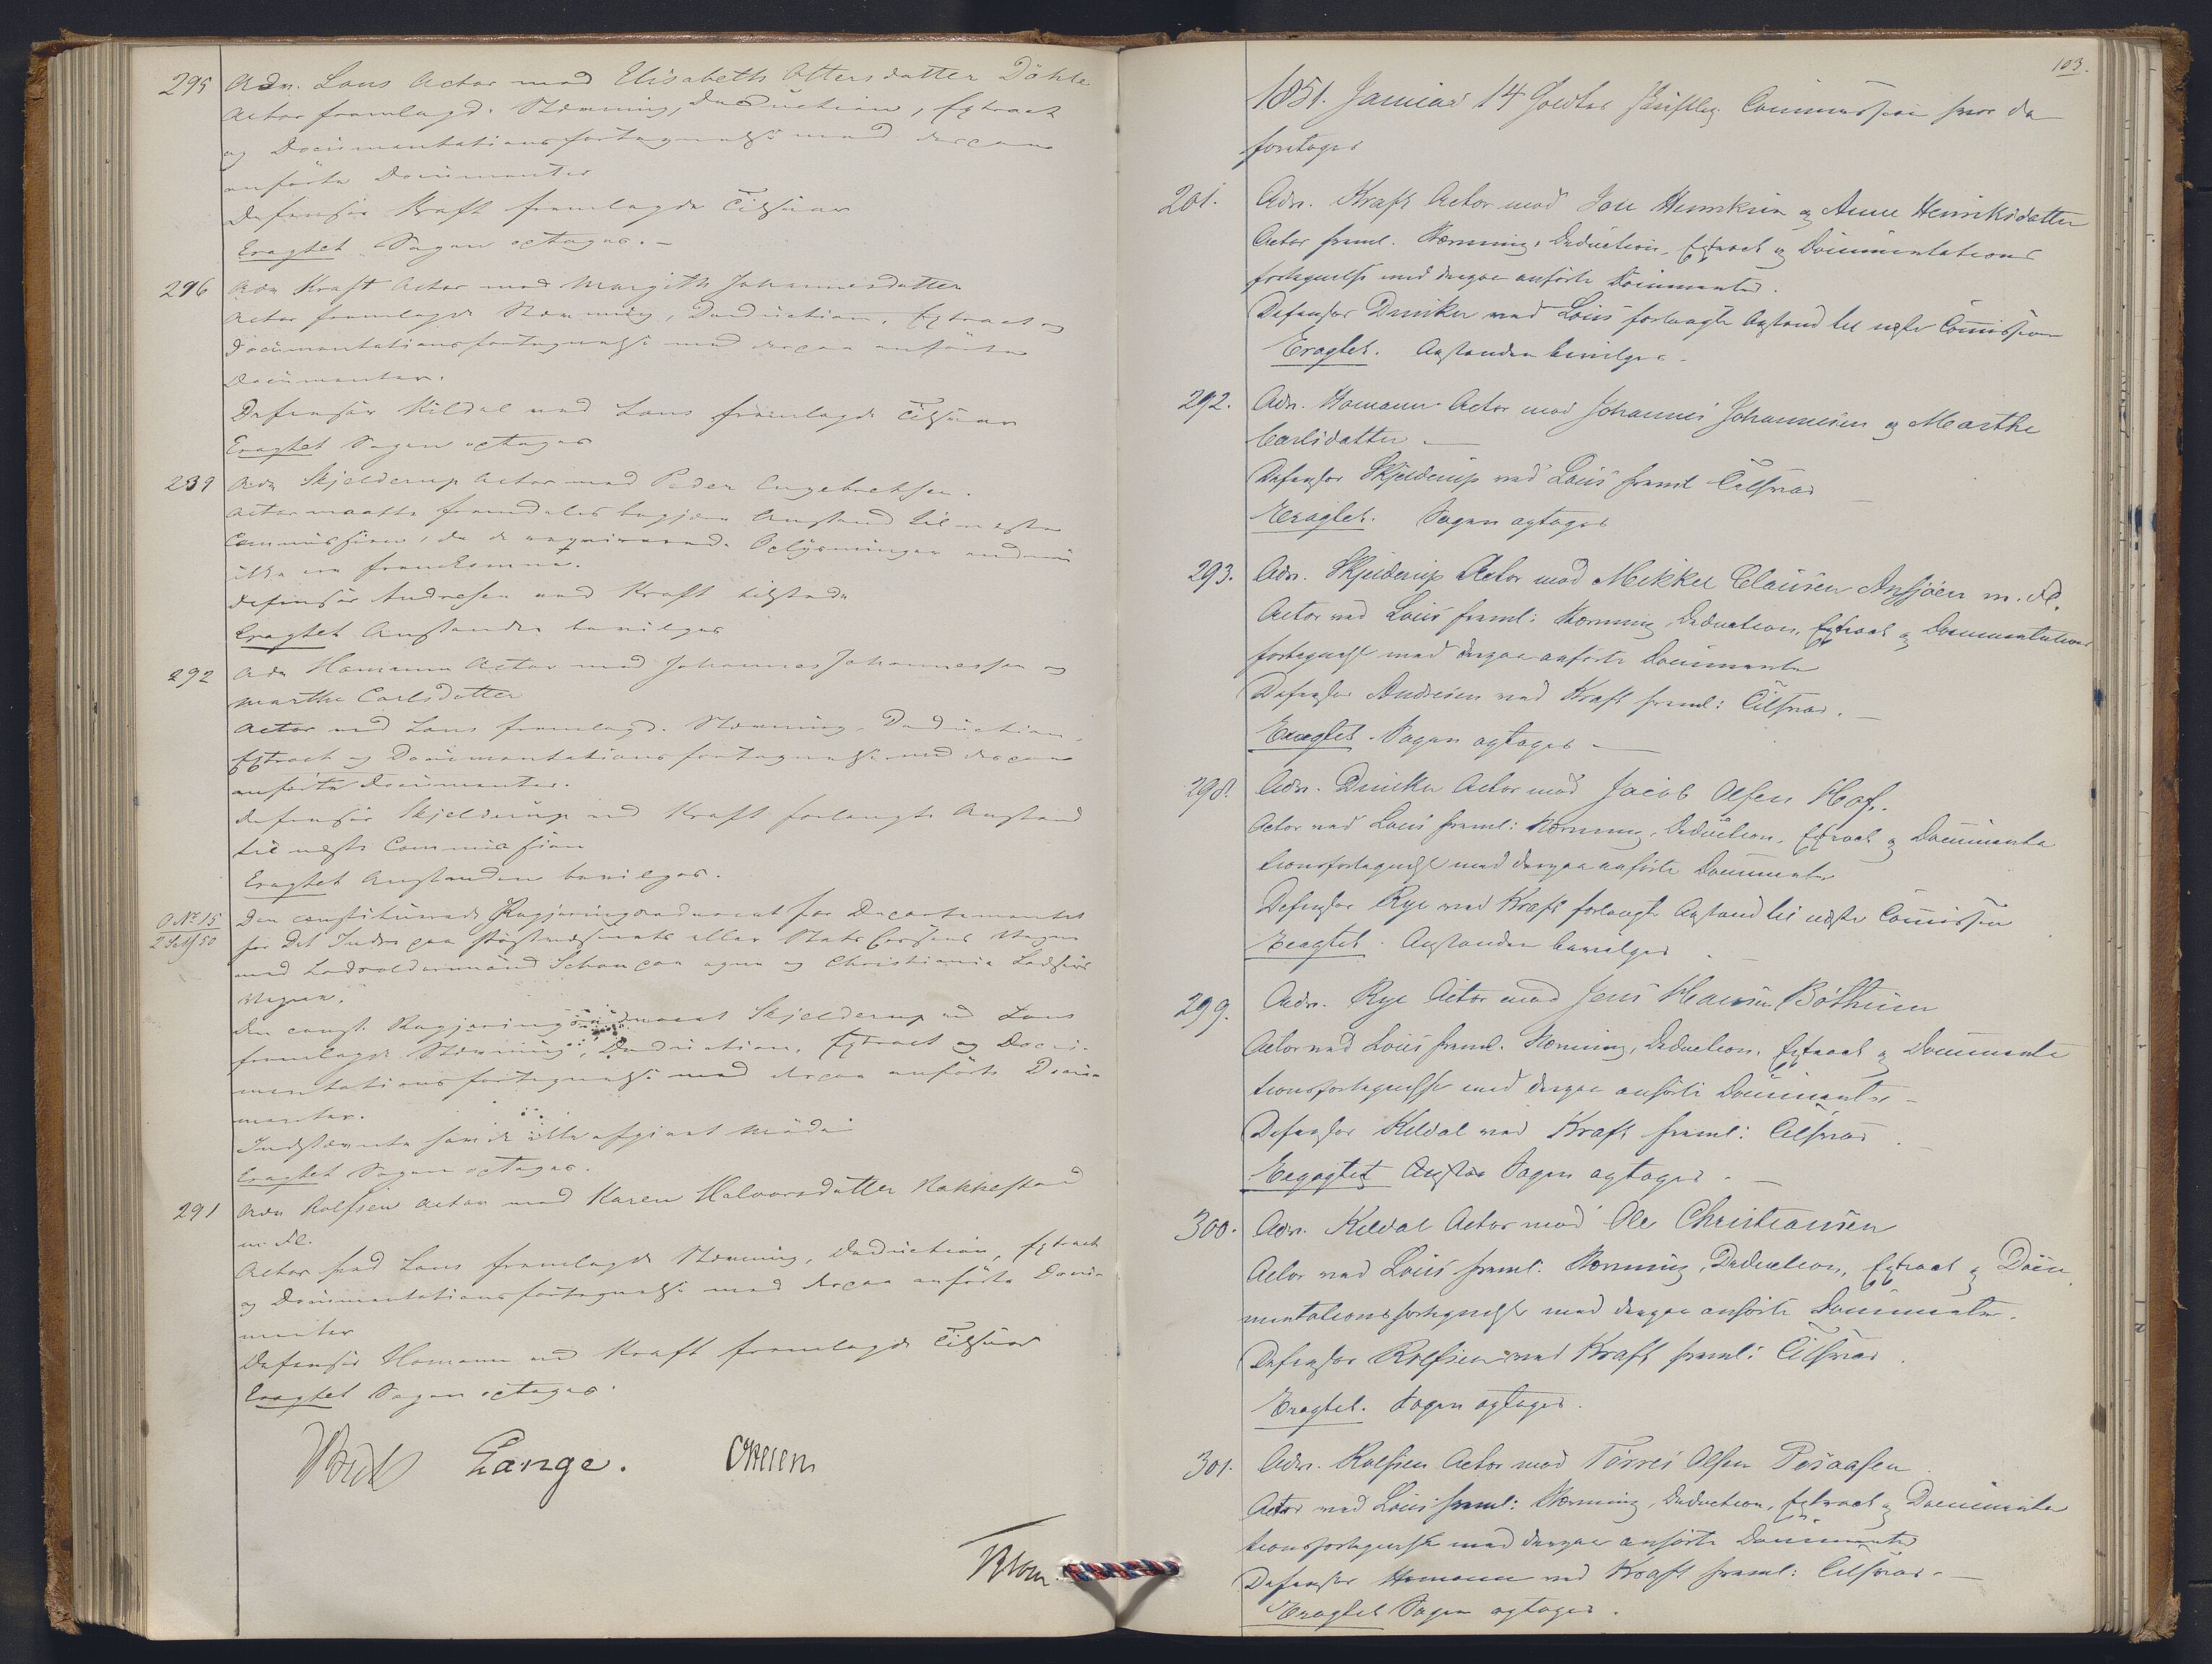 295 Adv. Lous Actor mod Elisabeth Ottersdatter Döhle
Actor fremlagde Stævning, Deduction, Extract
og Documentationsfortegnelse med derpaa
anförte Documenter
Defensor Kraft fremlagde Tilsvar
Eragtet Sagen optages. –
296 Adv Kraft Actor mod Margith Johannesdatter
Actor fremlagde Stævning, Deduction, Extract og
Documentationsfortegnelse med derpaa anförte
Documenter.
Defensor Kildal ved Lous fremlagde Tilsvar
Eragtet Sagen optages
239 Adv Skjelderup Actor mod Peder Engebretsen.
Actor maatte fremdeles begjere Anstand til næste
Commission, da de requirerede Oplysninger endnu
ikke ere fremkomne.
Defensor Andresen ved Kraft tilstede
Eragtet Anstanden bevilges
292 Adv Homann Actor mod Johannes Johannessen og
Marthe Carlsdatter
Actor ved Lous fremlagde Stævning, Deduction,
Extract og Documentationsfortegnelse med derpaa
anförte Documenter.
Defensor Skjelderup ved Kraft forlangte Anstand
til næste Commission
Eragtet Anstanden bevilges.
O No 15
2 Sess 50 Den constituerede Regjeringsadvocat for Departementet
for det Indre paa eller Stats Cassens Vegne
mod Schou paa egne og Christiania
Vegne.
Den const. Regjeringsadvocat Skjelderup ved Lous
fremlagde Stævning, Deduction, Extract og Docu-
mentationsfortegnelse med derpaa anförte Docu-
menter.
Indstævnte havde ikke afgivet Möde
Eragtet Sagen optages.
291 Adv Rolfsen Actor mod Karen Halvorsdatter Rakkestad
m. fl.
Actor ved Lous fremlagde Stævning, Deduction, Extract
og Documentationsfortegnelse med derpaa anförte Docu-
menter
Defensor Homann ved Kraft fremlagde Tilsvar
Eragtet Sagen optages.
Lange.
Blom
103.
1851. Januar 14 holdtes skriftlig Commission hvor da
foretages
201. Adv. Kraft Actor mod Jon Henriksen og Anne Henriksdatter
Actor freml. Stævning, Deduction, Extract og Documentations
fortegnelse med derpaa anförte Documenter.
Defensor Dunker ved Lous forlangte Anstand til næste Commission
Eragtet. Anstanden bevilges –
292. Adv. Homann Actor mod Johannes Johannesen og Marthe
Carlsdatter –
Defensor Skjelderup ved Lous freml Tilsvar
Eragtet. Sagen optages
293. Adv. Skjelderup Actor mod Mikkel Clausen m. fl.
Actor ved Lous freml: Stævning, Deduction, Extract og Documentations
fortegnelse med derpaa anförte Documenter
Defensor Andresen ved Kraft freml: Tilsvar. –
Eragtet Sagen optages –
298. Adv. Dunker Actor mod Jacob Olsen Hof.
Actor ved Lous freml: Stævning, Deduction, Extract og Documenta
tionsfortegnelse med derpaa anförte Documenter
Defensor Rye ved Kraft forlangte Anstand til næste Commission
Eragtet. Anstanden bevilges
299. Adv. Rye Actor mod Jens Hansen Böthun
Actor ved Lous freml. Stævning, Deduction, Extract og Documenta
tionsfortegnelse med derpaa anförte Documenter –
Defensor Kildal ved Kraft freml: Tilsvar
Eragtet Sagen optages. –
300. Adv. Kildal Actor mod Ole Christiansen
Actor ved Lous freml. Stævning, Deduction, Extract og Docu
mentationsfortegnelse med derpaa anförte Documenter.
Defensor Rolfsen ved Kraft freml: Tilsvar.
Eragtet. Sagen optages.
301. Adv. Rolfsen Actor mod Törres Olsen
Actor ved Lous freml: Stævning, Deduction, Extract og Documenta
tionsfortegnelse med derpaa anförte Documenter
Defensor Homann ved Kraft freml: Tilsvar. –
Eragtet Sagen optages.